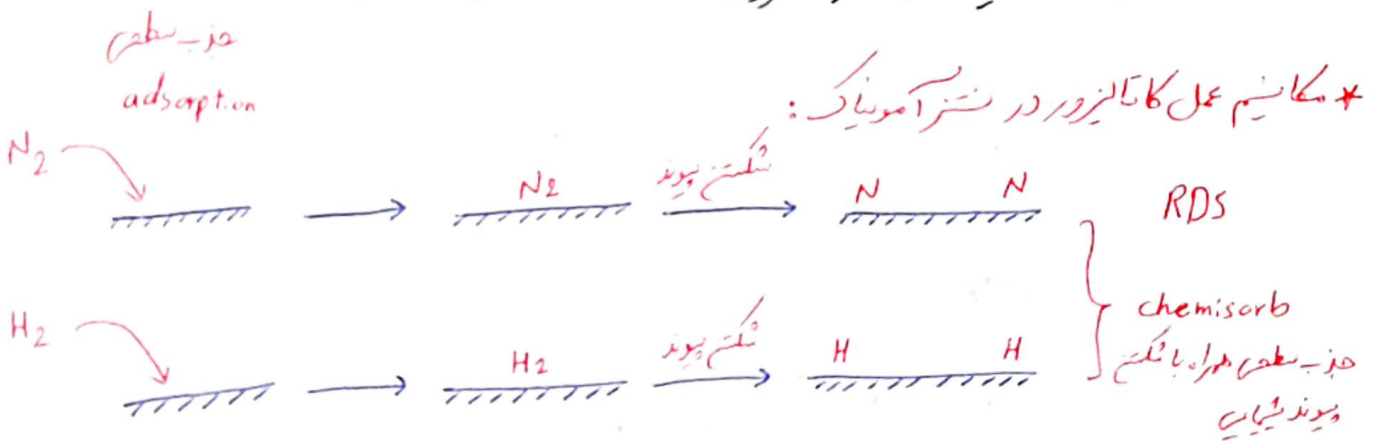 جذب سطحی
adsorption
* مکانیسم عمل کاتالیزور در سنتز آمونیاک :
N2
N2
شکستن پیوند
N N
RDS
H2
H2
شکستن پیوند
H H
chemisorb
جذب سطحی همراه با شکستن
پیوند شیمیایی